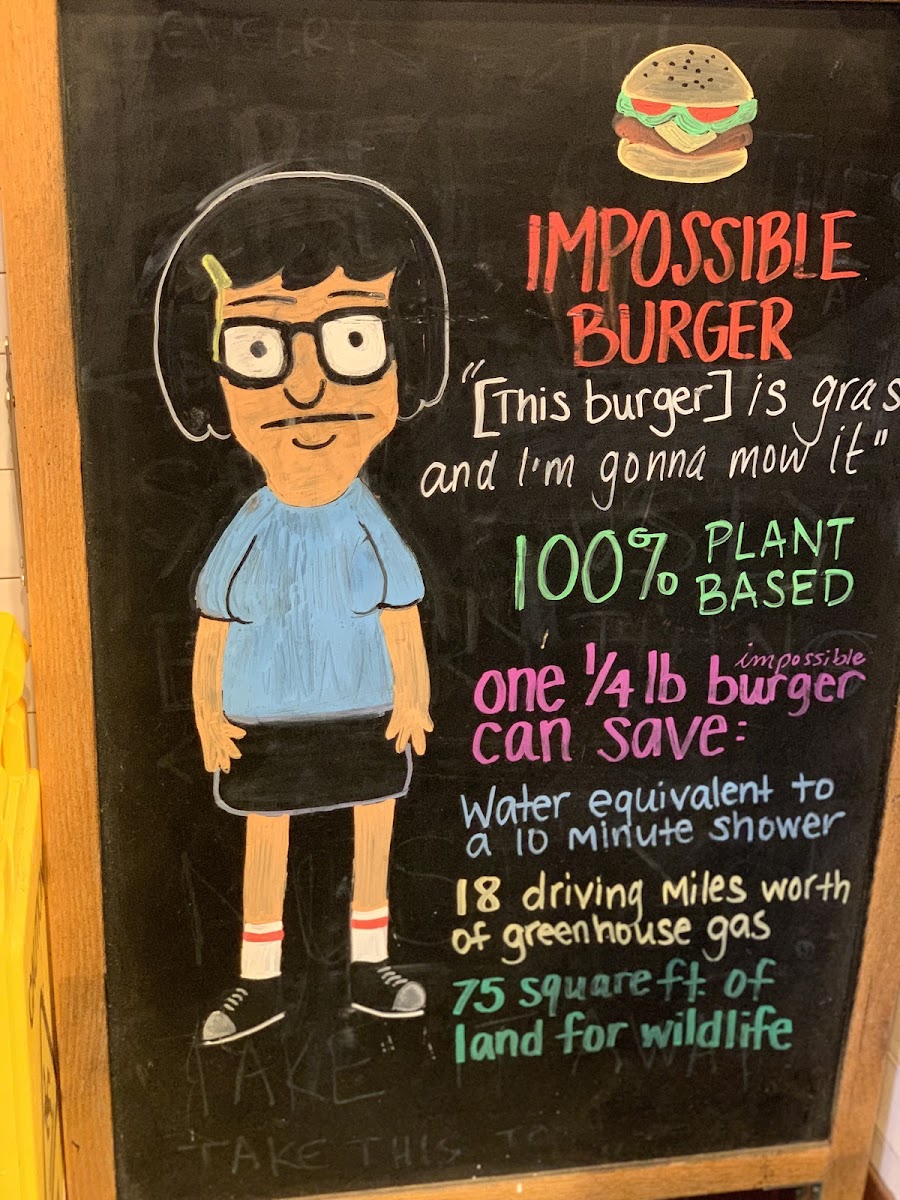 IMPOSSIBLE
BURGER
"[This burger] is gras
and I'm gonna mow it"
100% PLANT
BASED
impossible
one 1/4 lb burger
can save:
Water equivalent to
a 10 minute shower
18 driving miles worth
of greenhouse gas
75 square ft. of
land for wildlife
TAKE
TAKE THIS TO